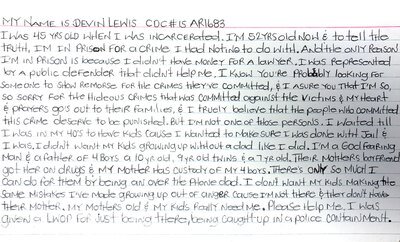 MY NAME IS DEVIN LEWIS CDC#IS AR1683
I WAS 45 YRS OLD WHEN I WAS INCARCERATED. I'M 52YRS OLD NOW & TO tell the
truth, I'm IN PRISON FOR A CRIME I HAD NOTING to do with. And the ONLY REASON
I'm IN PRISON is because I didN't have MONEY FOR A LAWYER. I WAS REPRESENTED
by a public defender that didn't help me. I KNOW YOU'RE PRObAbly looking for
SOMEONE to SHOW REMORSE FOR the CRIMES they've COMMITTED, & I ASURE YOU that I'M SO,
SO SORRY FOR the Hideous CRIMES that was COMMITTED against the VICTIMS & MY HEART
& PRAYERS go's out to their FAMILIES, & I truely believe that the people who committed
this CRIME deserve to be punished. But I'M NOT ONE of those PERSONS. I WAITED till
I WAS IN MY 40'S to HAVE KIdS Cause I WANTED to MAKE SURE I WAS done with Jail & 
I WAS. I didN't WANT MY KIds GROWING UP without a dad like I did. I'M A GOd FEARING
MAN & A FAther of 4 BOYS. A 10 YR old, 9 YR old twiNS & A 7 YR old. Their MOTHERS boyfriend
got HER ON drugs & MY MOTHER HAS Custody of MY 4 boys. THERE'S ONly SO MUCH I
CAN do FOR them by being an over the PHONE dad. I don't WANT MY KIdS MAKING the
SAME MISTAKES I'VE MADE GROWING UP out of ANGER Cause I'M NOT HERE & they don't HAVE
their MOTHER. MY MOTHERS OLd & MY KIds REALLY Need ME. Please Help Me. I WAS
given A LWOP FOR Just being there, being caught up in a police containment.